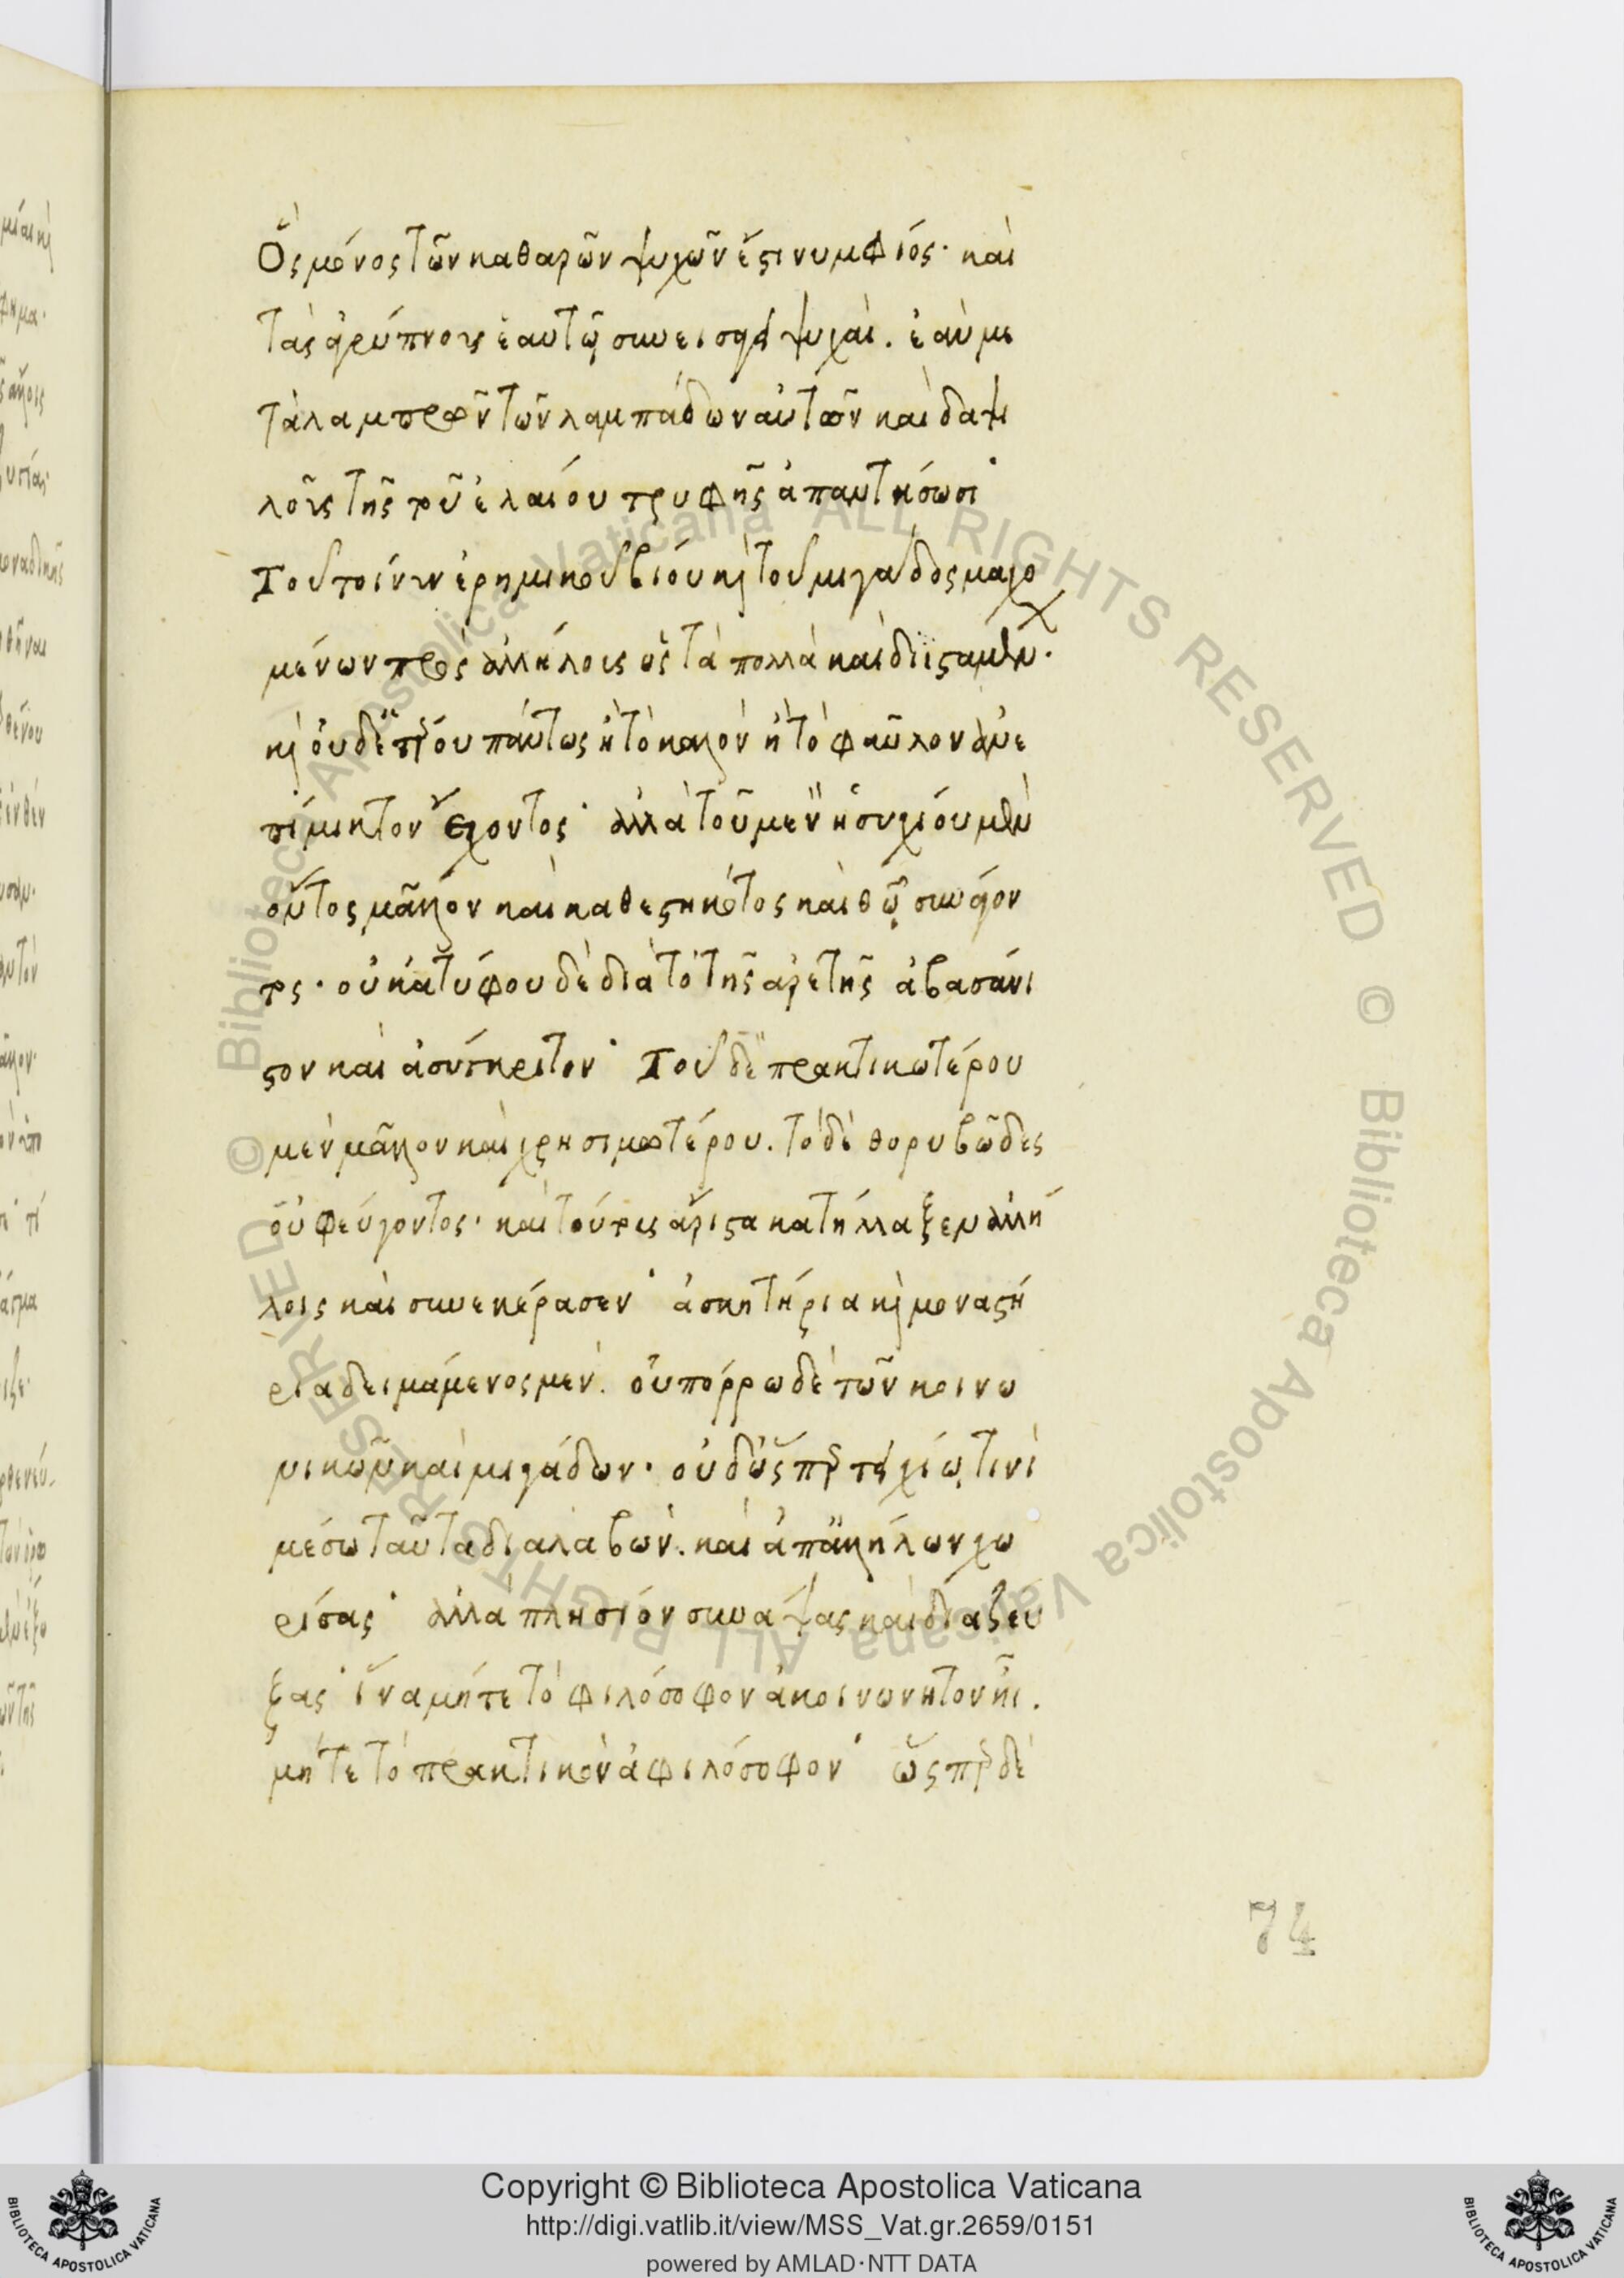 Ὃς μόνος τῶν καθαρῶν ψυχῶν ἔστι νυμφίος· καὶ
τὰς ἀγρύπνοις ἑαυτῷ συνεισάγει ψυχάς. ἐὰν με
τὰ λαμπρῶν τῶν λαμπάδων αὐτῶν καὶ δαψι
λοῦς τῆς τοῦ ἐλαίου τρυφῆς ἀπαντήσωσι·
Τοῦ τοίνυν ἐρημικοῦ βίου καὶ τοῦ μιγάδος μαχο
μένων πρὸς ἀλλήλους ὡς τὰ πολλὰ καὶ διϊσταμένων.
καὶ οὐδετέρου πάντως ἢ τὸ καλὸν ἢ τὸ φαῦλον ἀνε
πίμικτον ἔχοντος· ἀλλὰ τοῦ μὲν ἡσυχίου μὲν
ὄντος μᾶλλον καὶ καθεστηκότος καὶ θεῷ συνάγον
τος· οὐκ ἀτύφου δὲ διὰ τὸ τῆς ἀρετῆς ἀβασάνι
στον καὶ ἀσύγκριτον· Τοῦ δὲ πρακτικωτέρου
μὲν μᾶλλον καὶ χρησιμωτέρου. τὸ δὲ θορυβῶδες
οὐ φεύγοντος· καὶ τούτους ἄριστα κατήλλαξεν ἀλλή
λοις καὶ συνεκέρασεν· ἀσκητήρια καὶ μοναστή
ρια δειμάμενος μέν. οὐ πόρρω δὲ τῶν κοινω
νικῶν καὶ μιγάδων· οὐδ' ὥσπερ τειχίῳ τινὶ
μέσῳ ταῦτα διαλαβὼν. καὶ ἀπ' ἀλλήλων χω
ρίσας· ἀλλὰ πλησίον συνάψας καὶ διαζεύ
ξας· ἵνα μήτε τὸ φιλόσοφον ἀκοινώνητον ᾖ.
μήτε τὸ πρακτικὸν ἀφιλόσοφον· ὥσπερ δὲ
74
Copyright © Biblioteca Apostolica Vaticana
http://digi.vatlib.it/view/MSS_Vat.gr.2659/0151
powered by AMLAD·NTT DATA
BIBLIOTECA APOSTOLICA VATICANA
BIBLIOTECA APOSTOLICA VATICANA
© Biblioteca Apostolica Vaticana ALL RIGHTS RESERVED
© Biblioteca Apostolica Vaticana ALL RIGHTS RESERVED